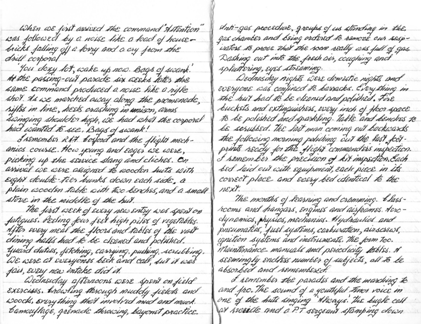 When we first arrived the command "Attention"
was followed by a noise like a load of house-
bricks falling off a lorry and a cry from the
drill corporal.
"You dozy lot, wake up now. Bags of swank!"
At the passing-out parade six weeks later the
same command produced a noise like a rifle
shot. As we marched away along the promenade,
rifles in line, heels crashing in unison, arms
swinging shoulder high, we had what the corporal
had wanted to see. Bags of swank!
I remember and the flight mech-
anics course. How young and say we were,
picking up the service slang and cliches. On
arrival we were assigned to wooden huts with
eight double-tier bunks down each side, a
plain wooden table with two benches, and a small
stove in the middle of the hut.
The first week of every new entry was spent on
fatigues. Peeling four foot high piles of vegetables.
After every meal the floors and tables of the vast
dining halls had to be cleaned and polished.
Guard duties, fetching, carrying, pushing, scrubbing.
We were at everyone's beck and call, but it was
fair, every new intake did it.
Wednesday afternoons were spent on field
exercises. Crawling through muddy fields and
woods, everything that involved mud and muck.
Camouflage, grenade throwing, bayonet practice.
Anti-gas procedure, groups of us standing in the
gas chamber and being ordered to remove our resp-
irators to prove that the room really was full of gas.
Dashing out into the fresh air, coughing and
spluttering, eyes streaming.
Wednesday nights were domestic nights and
everyone was confined to barracks. Everything in
the hut had to be cleaned and polished. Fire
buckets and extinguishers, every inch of floor space
to be polished and sparkling. Table and benches to
be scrubbed. The last man coming out backwards
the following morning polishing out the last foot-
prints ready for the flight commanders inspection.
I remember the precision of kit inspection. Each
bed laid out with equipment, each piece in its
correct place and every bed identical to the
next.
The months of learning and cramming. Class-
rooms and hangars, engines and airframes. Aero-
dynamics, physics, mechanics. Hydraulics and
pneumatics, fuel systems, carburation, airscrews,
ignition systems and instruments. The form 700.
Maintenance manuals and periodicity tables. A
seemingly endless number of subjects, all to be
absorbed and remembered.
I remember the parades and the marching to
and fro. The sound of a youthful tenor voice in
one of the huts singing The bugle call
at reveille and a PT sergeant stamping down